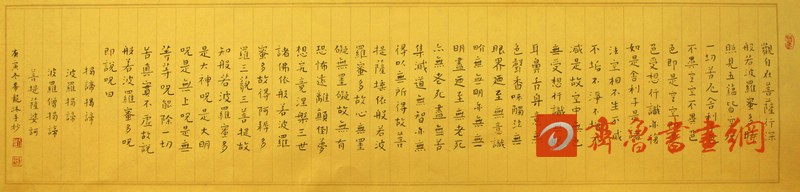 觀自在菩薩行深
般若波羅蜜多時
照見五蘊皆空度
一切苦厄舍利子色
不異空空不異色
色即是空空即是
色受想行識亦復
如是舍利子是諸
法空相不生不滅
不垢不淨不增不
減是故空中無色
無受想行識無眼
耳鼻舌身意無
色聲香味觸法無
眼界乃至無意識
界無無明亦無無
明盡乃至無老死
亦無老死盡無苦
集滅道無智亦無
得以無所得故菩
提薩埵依般若波
羅蜜多故心無罣
礙無罣礙故無有
恐怖遠離顛倒夢
想究竟涅槃三世
諸佛依般若波羅
蜜多故得阿耨多
羅三藐三菩提故
知般若波羅蜜多
是大神呪是大明
呪是無上呪是無
等等呪能除一切
苦真實不虛故說
般若波羅蜜多呪
即說呪曰
揭諦揭諦
波羅揭諦
波羅僧揭諦
菩提薩婆訶
齊魯書畫網